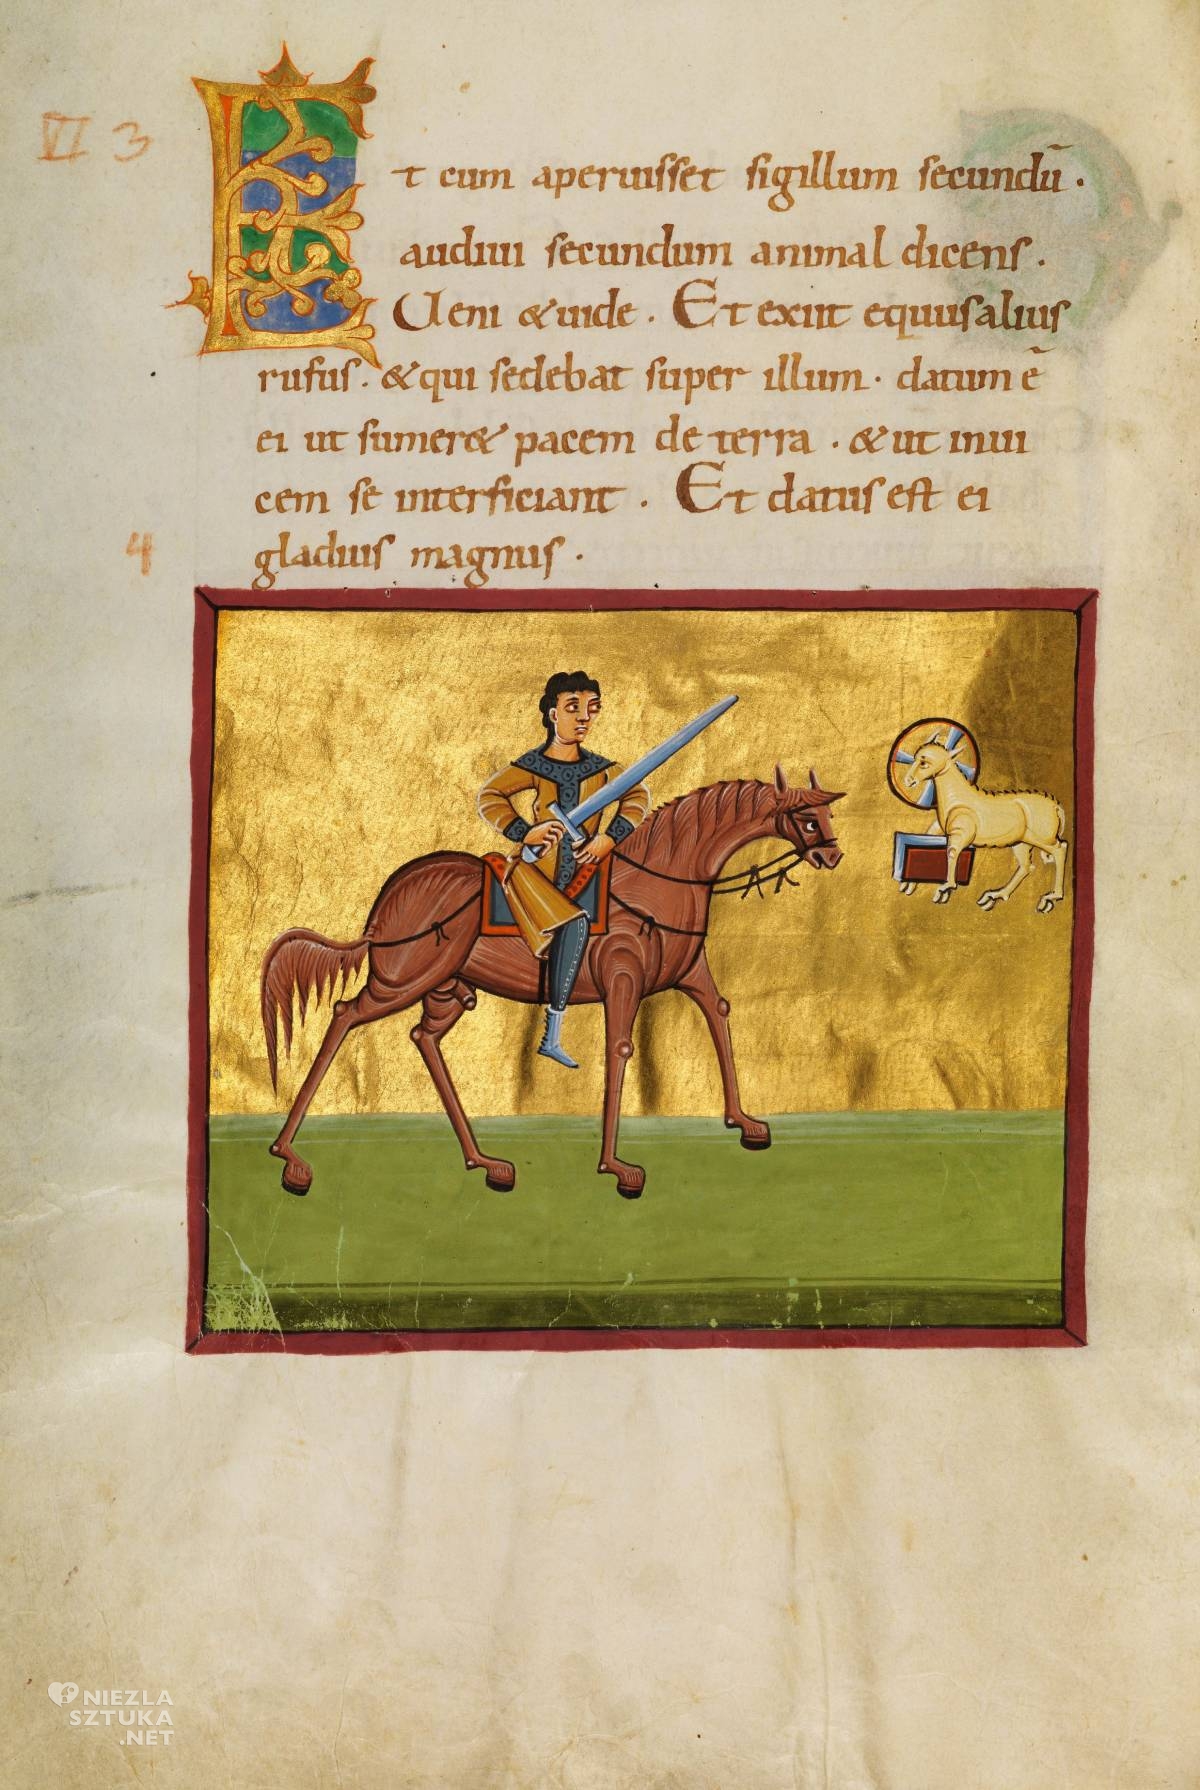 VI 3
Et cum aperuisset sigillum secundū ·
audiui secundum animal dicens .
Ueni &uide . Et exiit equus alius
rufus . & qui sedebat super illum · datum ē
ei ut sumer& pacem de terra . & ut inui
cem se interficiant . Et datus est ei
4
gladius magnus ·
NIEZLA
SZTUKA
.NET